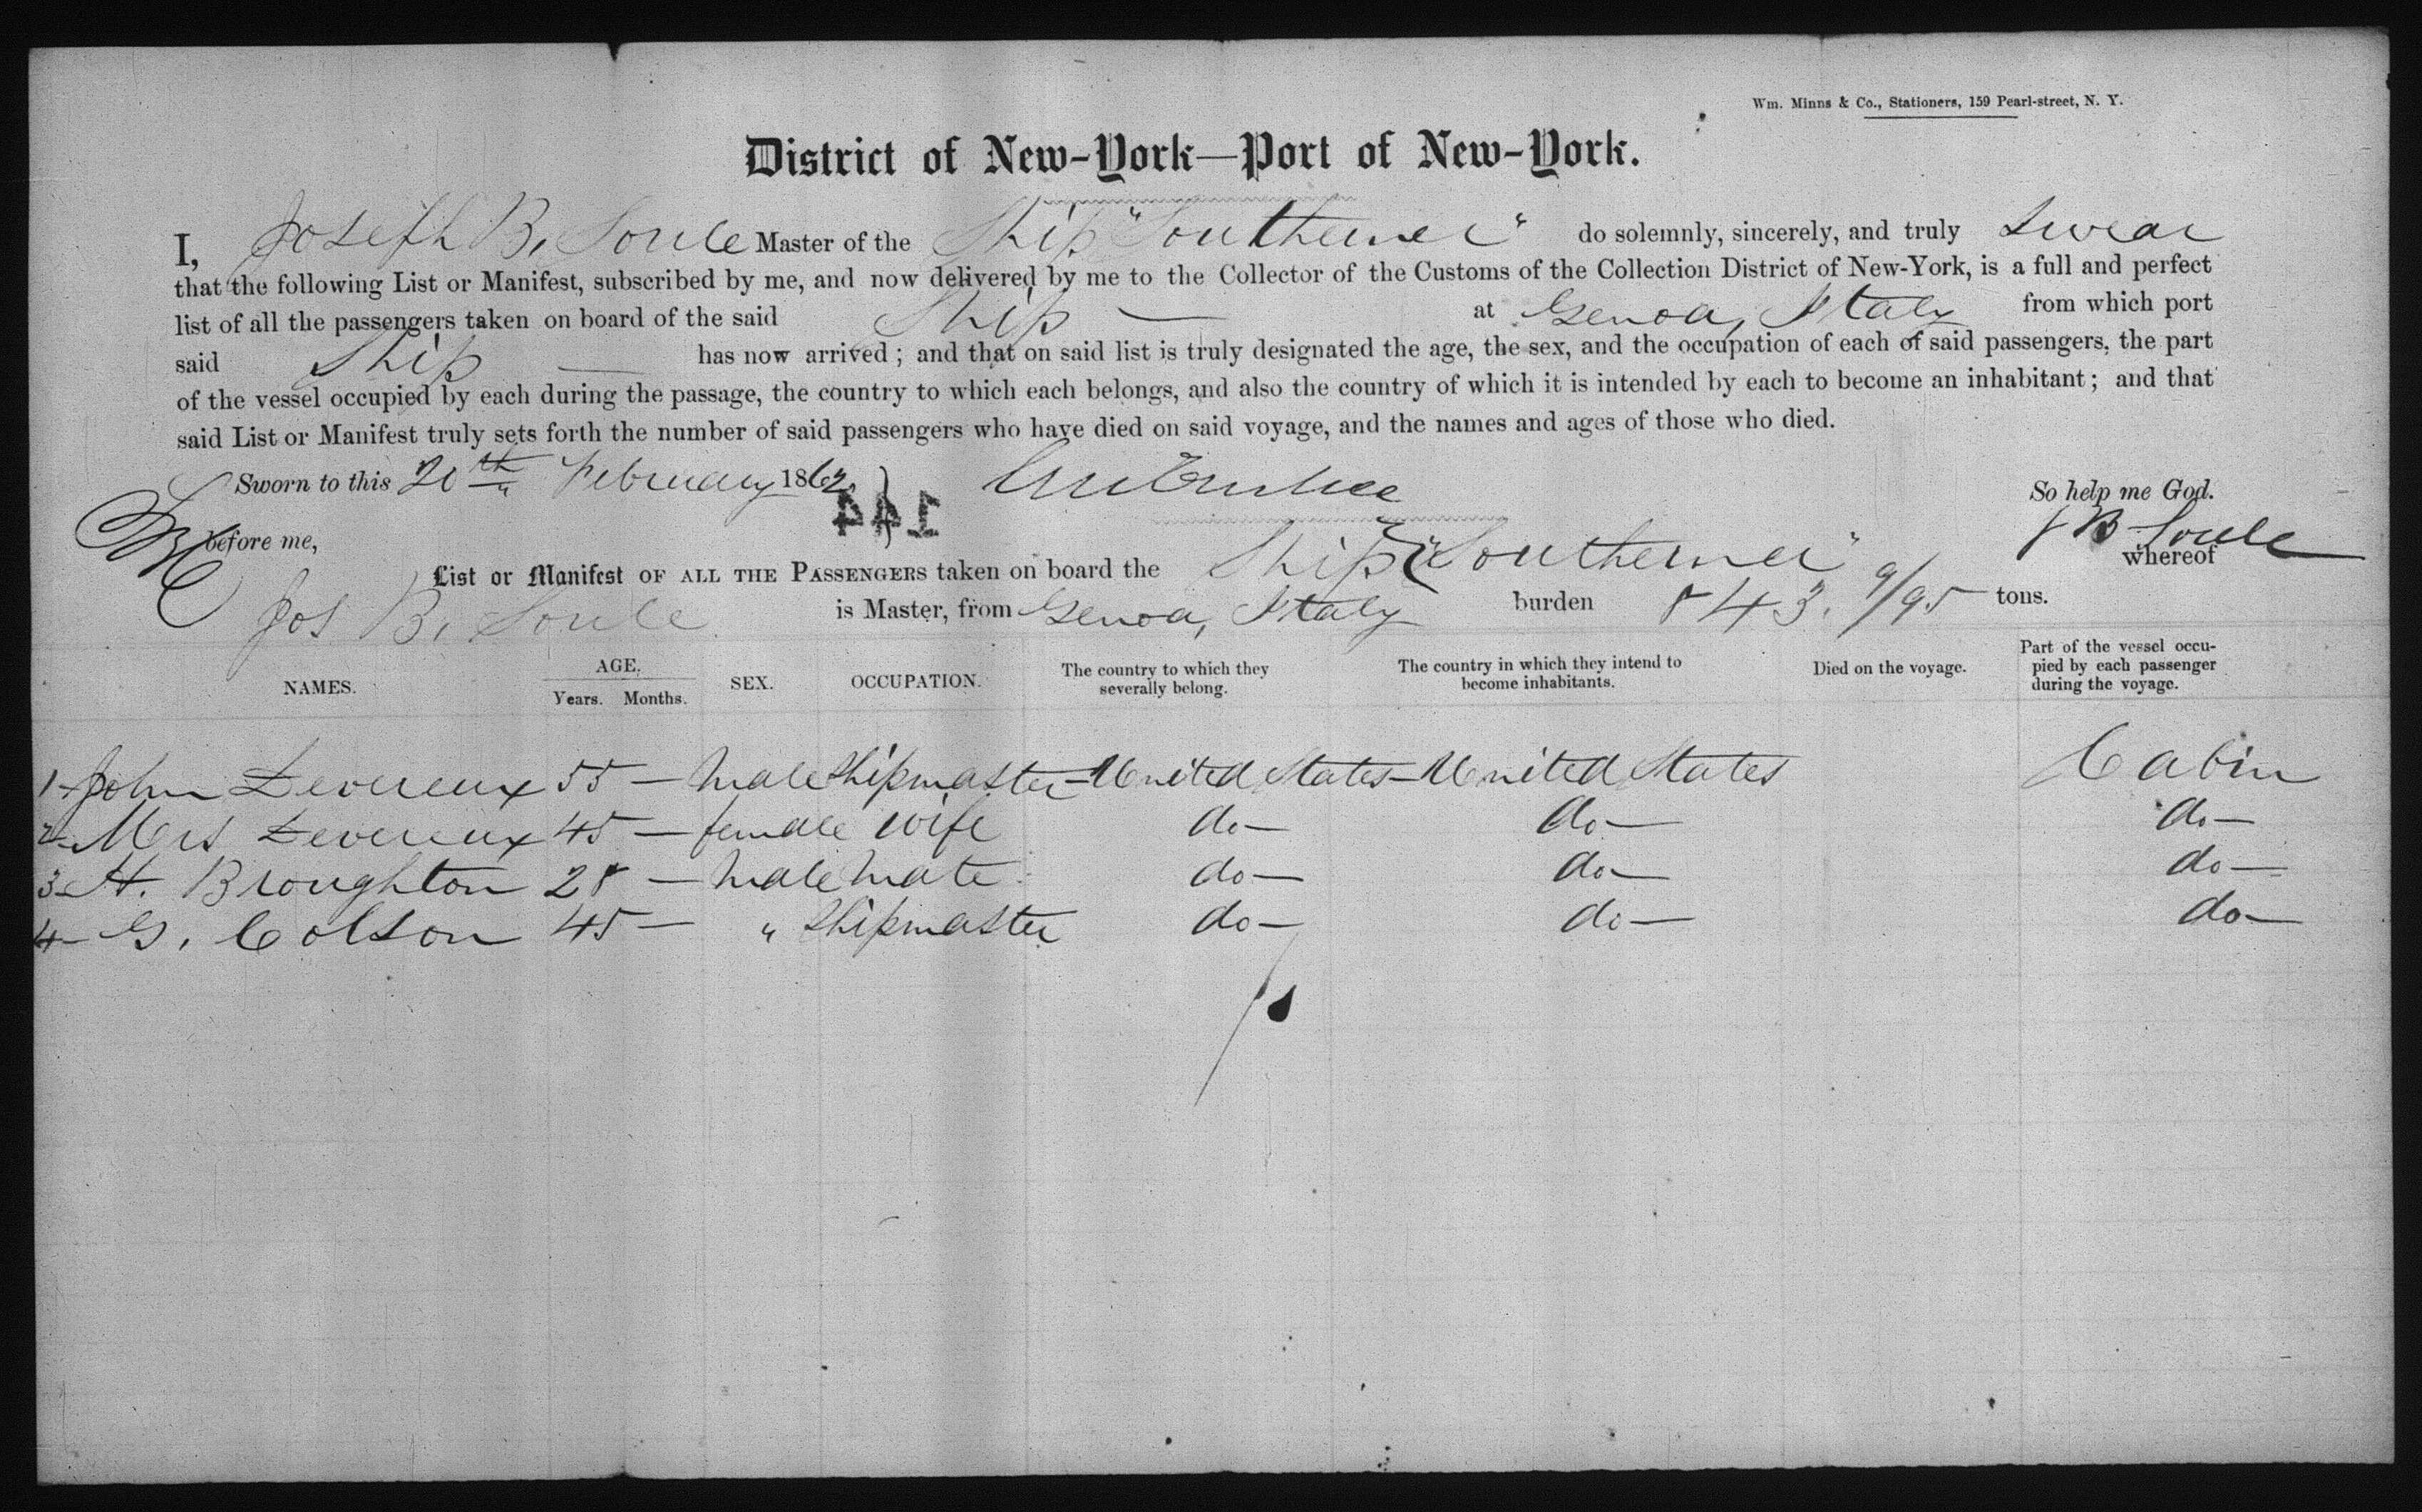 Wm. Minns & Co., Stationers, 159 Pearl-street, N. Y.
District of New-York—Port of New-York.
I, Joseph B. Soule Master of the Ship "Southerner" do solemnly, sincerely, and truly swear
that the following List or Manifest, subscribed by me, and now delivered by me to the Collector of the Customs of the Collection District of New-York, is a full and perfect
list of all the passengers taken on board of the said Ship — at Genoa, Italy from which port
said Ship — has now arrived; and that on said list is truly designated the age, the sex, and the occupation of each of said passengers, the part
of the vessel occupied by each during the passage, the country to which each belongs, and also the country of which it is intended by each to become an inhabitant; and that
said List or Manifest truly sets forth the number of said passengers who have died on said voyage, and the names and ages of those who died.
Sworn to this 20th February 1862 So help me God.
144
before me, J B Soule
List or Manifest OF ALL THE PASSENGERS taken on board the Ship "Southerner" whereof
Jos B. Soule is Master, from Genoa, Italy burden 843. 9/95 tons.
NAMES. AGE. Years. Months. SEX. OCCUPATION. The country to which they severally belong. The country in which they intend to become inhabitants. Died on the voyage. Part of the vessel occupied by each passenger during the voyage.
1- John Devereux 55 — male Shipmaster — United States — United States Cabin
2- Mrs Devereux 45 — female wife do — do — do —
3- H. Broughton 28 — male mate do — do — do —
4- G. Colson 45 — " Shipmaster do — do — do —